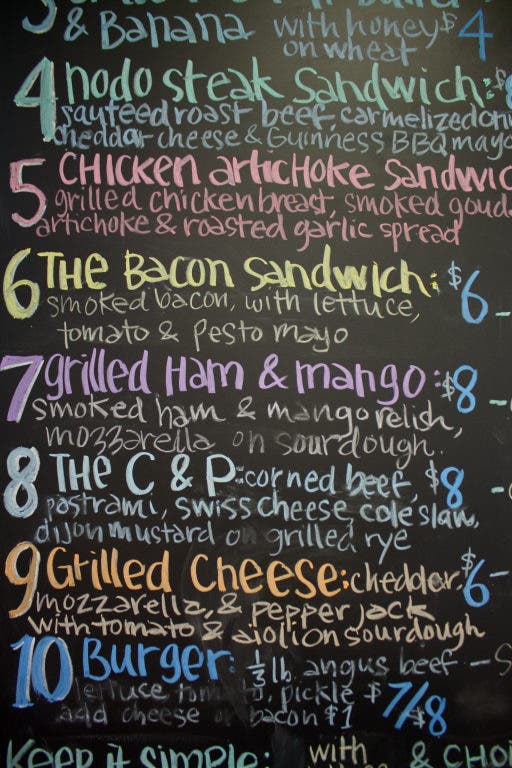 & Banana with honey $4
on wheat
4 nodo steak Sandwich: $
sauteed roast beef, carmelized oni
cheddar cheese & Guinness BBQ mayo
5 CHICKEN artichoke Sandwic
grilled chicken breast, smoked goud
artichoke & roasted garlic spread
6 THE Bacon Sandwich: $6-
smoked bacon, with lettuce,
tomato & pesto mayo
7 grilled Ham & mango: $8 -
smoked ham & mango relish,
mozzarella on sourdough.
8 THE C & P: corned beef, $8 -
pastrami, swiss cheese, cole slaw,
dijon mustard on grilled rye
9 Grilled Cheese: cheddar, $6-
mozzarella, & pepper jack
with tomato & aioli on sourdough
10 Burger: 1/3 lb. angus beef - S
lettuce tomato, pickle $7/$8
add cheese or bacon $1
Keep it simple: with & CHOI